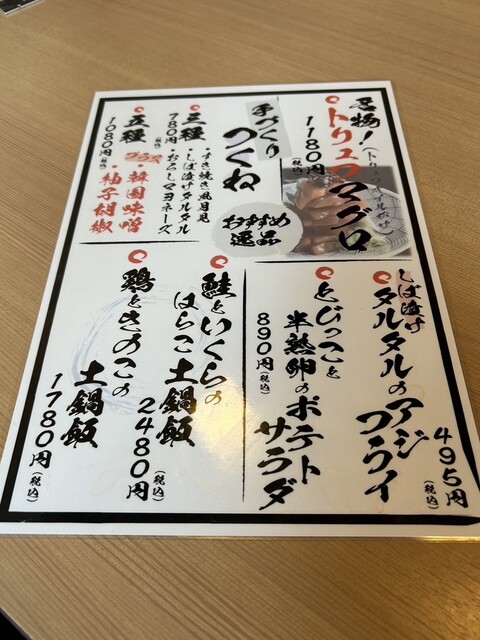 名物!
トリュフマグロ
1180円(税込)
手づくり
つくね
三種
780円(税込)
・すき焼き風月見
・しば漬けタルタル
・おろしマヨネーズ
五種
1080円(税込)
プラス
・韓国味噌
・柚子胡椒
おすすめ
逸品
しば漬け
タルタルのアジフライ
495円(税込)
とびっこと
半熟卵のポテトサラダ
890円(税込)
鮭といくらの
はらこ土鍋飯
2480円(税込)
鶏ときのこの
土鍋飯
1780円(税込)